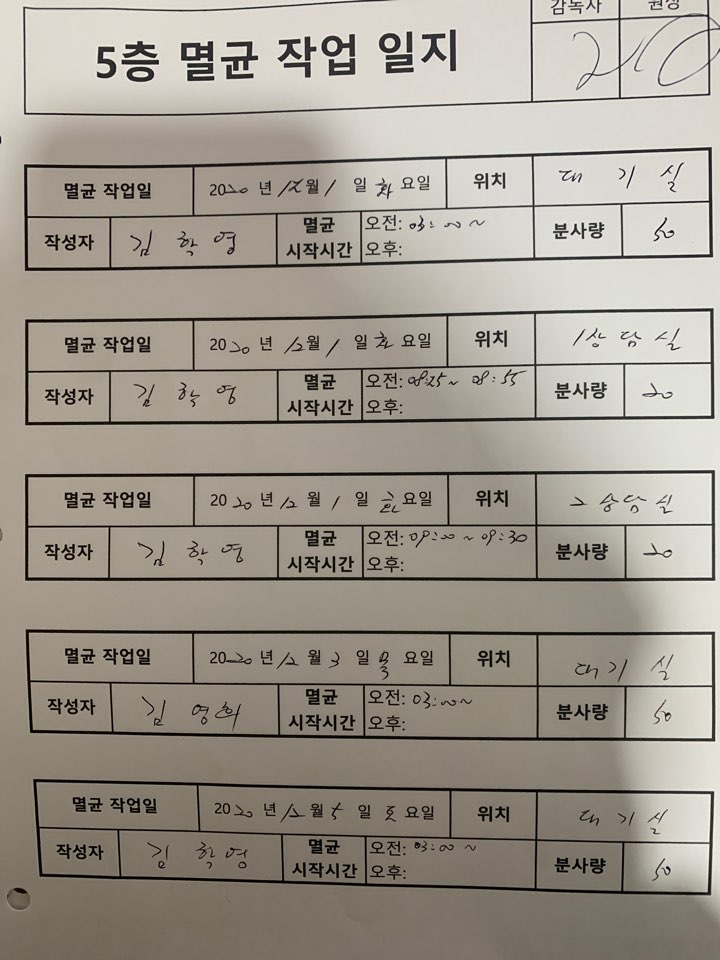 감독사 원장
5층 멸균 작업 일지
멸균 작업일 2020 년 12월 1 일 화 요일 위치 대기실
작성자 김학영 멸균 시작시간 오전: 03:00~ 분사량 50
오후:
멸균 작업일 2020 년 12월 1 일 화 요일 위치 1상담실
작성자 김학영 멸균 시작시간 오전: 08:25~ 08:55 분사량 20
오후:
멸균 작업일 2020 년 12월 1 일 요일 위치 2상담실
작성자 김학영 멸균 시작시간 오전: 09:00 ~ 09:30 분사량 20
오후:
멸균 작업일 2020 년 12월 3 일 목 요일 위치 대기실
작성자 김영희 멸균 시작시간 오전: 03:00~ 분사량 50
오후:
멸균 작업일 2020 년 12월 5 일 토 요일 위치 대기실
작성자 김학영 멸균 시작시간 오전: 03:00 ~ 분사량 50
오후: